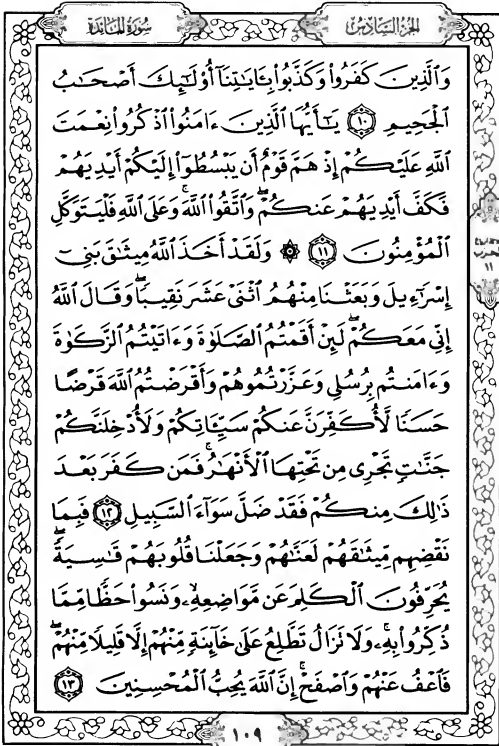 الجزء السادس
سورة المائدة
وَالَّذِينَ كَفَرُوا۟ وَكَذَّبُوا۟ بِـَٔايَٰتِنَآ أُو۟لَٰٓئِكَ أَصْحَٰبُ
ٱلْجَحِيمِ ١٠ يَٰٓأَيُّهَا ٱلَّذِينَ ءَامَنُوا۟ ٱذْكُرُوا۟ نِعْمَتَ
ٱللَّهِ عَلَيْكُمْ إِذْ هَمَّ قَوْمٌ أَن يَبْسُطُوٓا۟ إِلَيْكُمْ أَيْدِيَهُمْ
فَكَفَّ أَيْدِيَهُمْ عَنكُمْ ۖ وَٱتَّقُوا۟ ٱللَّهَ ۚ وَعَلَى ٱللَّهِ فَلْيَتَوَكَّلِ
ٱلْمُؤْمِنُونَ ١١ ۞ وَلَقَدْ أَخَذَ ٱللَّهُ مِيثَٰقَ بَنِىٓ
إِسْرَٰٓءِيلَ وَبَعَثْنَا مِنْهُمُ ٱثْنَىْ عَشَرَ نَقِيبًا ۖ وَقَالَ ٱللَّهُ
إِنِّى مَعَكُمْ ۖ لَئِنْ أَقَمْتُمُ ٱلصَّلَوٰةَ وَءَاتَيْتُمُ ٱلزَّكَوٰةَ
وَءَامَنتُم بِرُسُلِى وَعَزَّرْتُمُوهُمْ وَأَقْرَضْتُمُ ٱللَّهَ قَرْضًا
حَسَنًا لَّأُكَفِّرَنَّ عَنكُمْ سَيِّـَٔاتِكُمْ وَلَأُدْخِلَنَّكُمْ
جَنَّٰتٍ تَجْرِى مِن تَحْتِهَا ٱلْأَنْهَٰرُ ۚ فَمَن كَفَرَ بَعْدَ
ذَٰلِكَ مِنكُمْ فَقَدْ ضَلَّ سَوَآءَ ٱلسَّبِيلِ ١٢ فَبِمَا
نَقْضِهِم مِّيثَٰقَهُمْ لَعَنَّٰهُمْ وَجَعَلْنَا قُلُوبَهُمْ قَٰسِيَةً ۖ
يُحَرِّفُونَ ٱلْكَلِمَ عَن مَّوَاضِعِهِۦ ۙ وَنَسُوا۟ حَظًّا مِّمَّا
ذُكِّرُوا۟ بِهِۦ ۚ وَلَا تَزَالُ تَطَّلِعُ عَلَىٰ خَآئِنَةٍ مِّنْهُمْ إِلَّا قَلِيلًا مِّنْهُمْ ۖ
فَٱعْفُ عَنْهُمْ وَٱصْفَحْ ۚ إِنَّ ٱللَّهَ يُحِبُّ ٱلْمُحْسِنِينَ ١٣
الحزب
١١
١٠٩